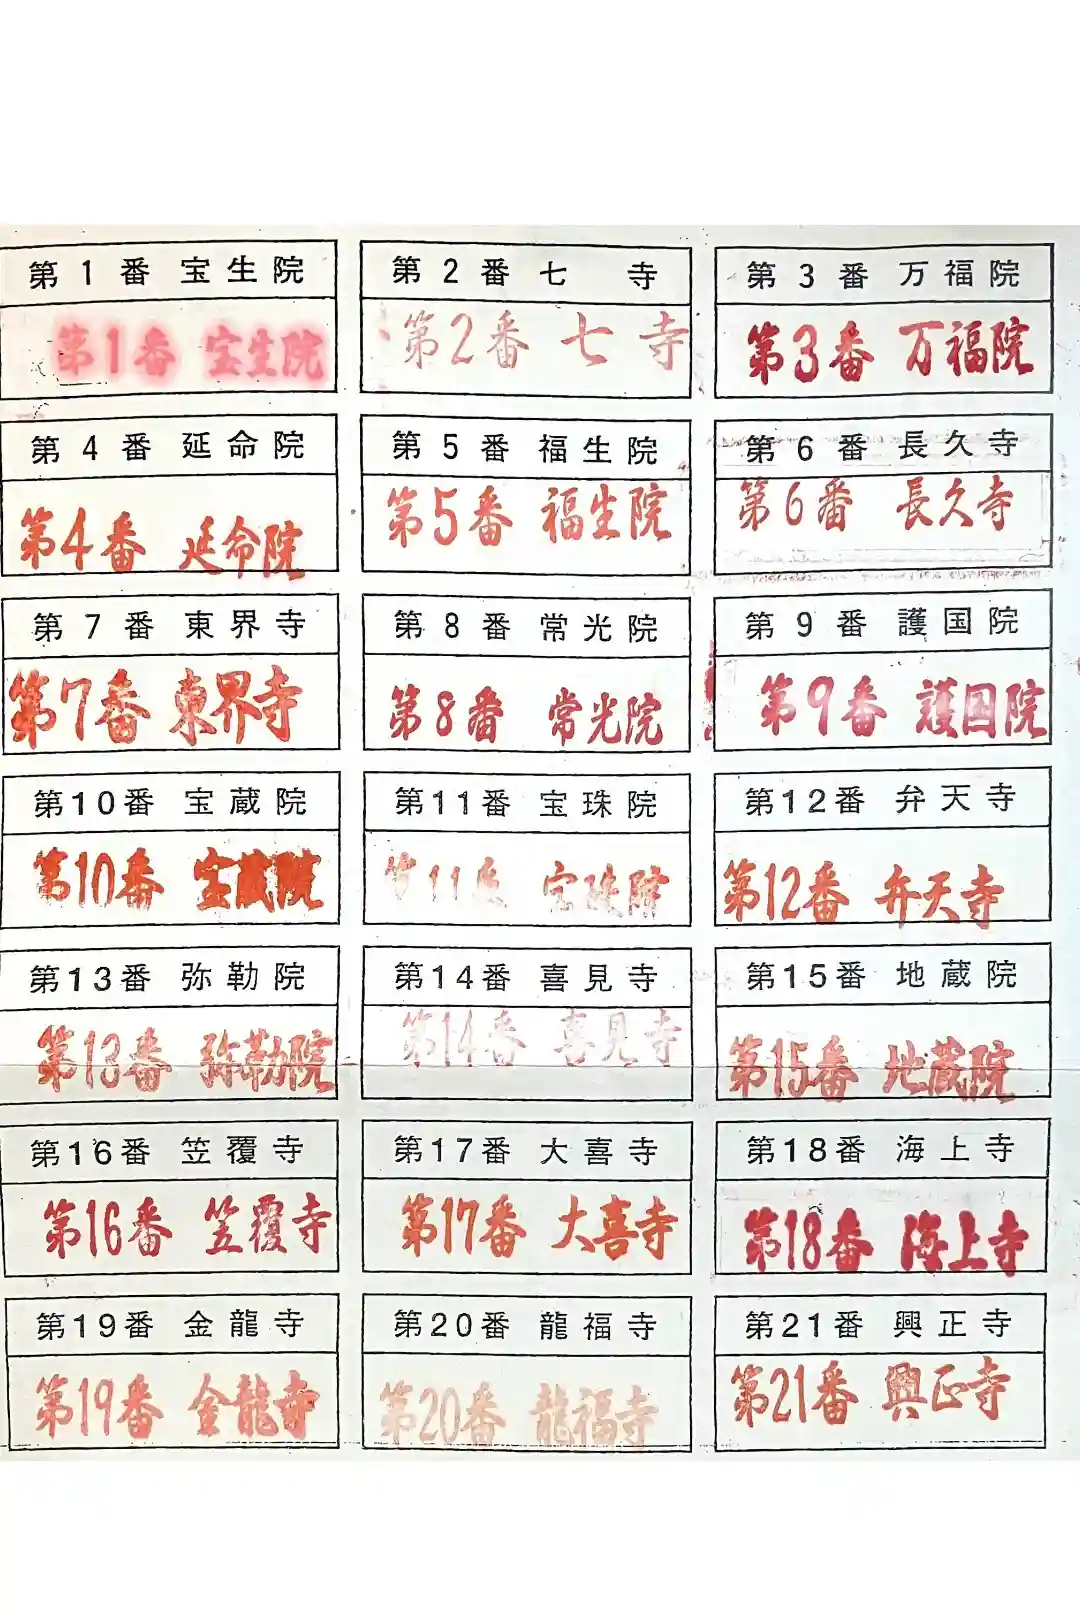 第1番 宝生院
第1番 宝生院
第2番 七寺
第2番 七寺
第3番 万福院
第3番 万福院
第4番 延命院
第4番 延命院
第5番 福生院
第5番 福生院
第6番 長久寺
第6番 長久寺
第7番 東界寺
第7番 東界寺
第8番 常光院
第8番 常光院
第9番 護国院
第9番 護国院
第10番 宝蔵院
第10番 宝蔵院
第11番 宝珠院
第11番 宝珠院
第12番 弁天寺
第12番 弁天寺
第13番 弥勒院
第13番 弥勒院
第14番 喜見寺
第14番 喜見寺
第15番 地蔵院
第15番 地蔵院
第16番 笠覆寺
第16番 笠覆寺
第17番 大喜寺
第17番 大喜寺
第18番 海上寺
第18番 海上寺
第19番 金龍寺
第19番 金龍寺
第20番 龍福寺
第20番 龍福寺
第21番 興正寺
第21番 興正寺